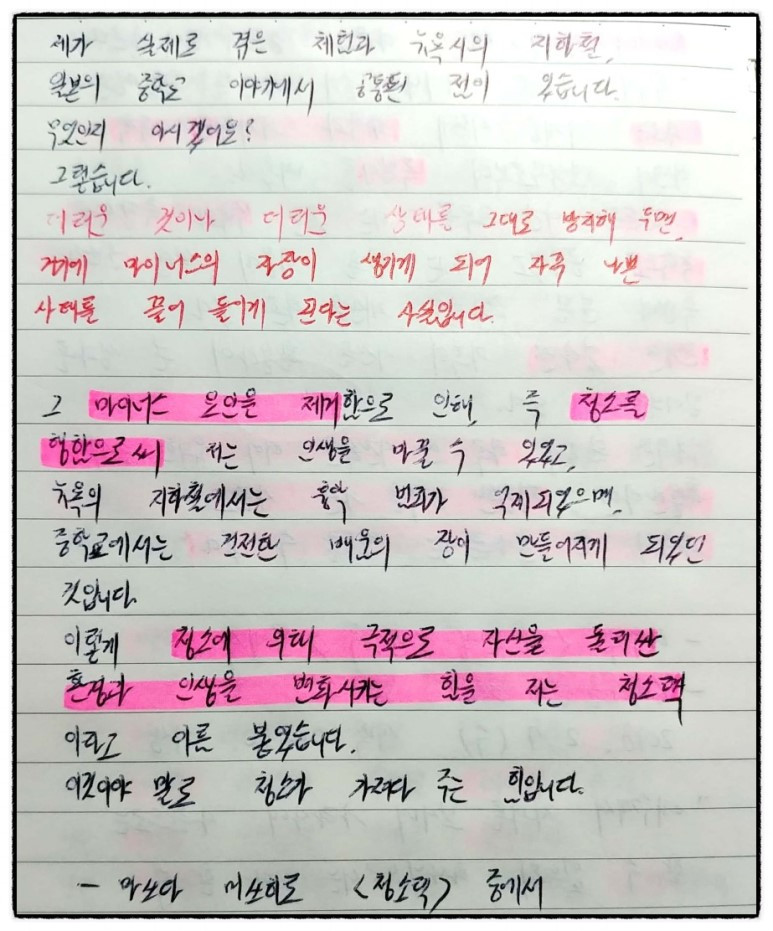 제가 실제로 겪은 체험과 뉴욕시의 지하철,
일본의 중학교 이야기에서 공통된 점이 있습니다.
무엇인지 아시겠어요?
그렇습니다.
더러운 것이나 더러운 상태를 그대로 방치해 두면,
거기에 마이너스의 자장이 생기게 되어 자꾸 나쁜
사태를 끌어 들이게 된다는 사실입니다.
그 마이너스 요인을 제거함으로 인해, 즉 청소를
행함으로써 저는 인생을 바꿀 수 있었고,
뉴욕의 지하철에서는 흉악 범죄가 억제되었으며,
중학교에서는 건전한 배움의 장이 만들어지게 되었던
것입니다.
이렇게 청소에 의해 극적으로 자신을 둘러싼
환경과 인생을 변화시키는 힘을 저는 청소력
이라고 이름 붙였습니다.
이것이야 말로 청소가 가져다 주는 힘입니다.
- 마쓰다 미쓰히로 <청소력> 중에서